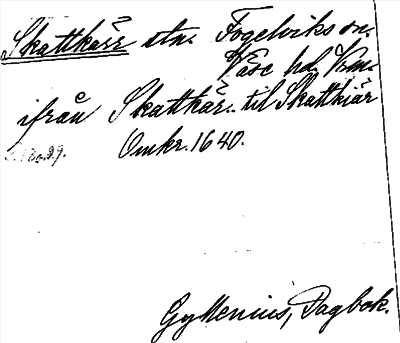 Skattkärr etn. Fogelviks sn.
Väse hd, Vrm.
ifrån Skattkär.. til Skattkiär
Omkr. 1640.
Gyllenius, Dagbok.